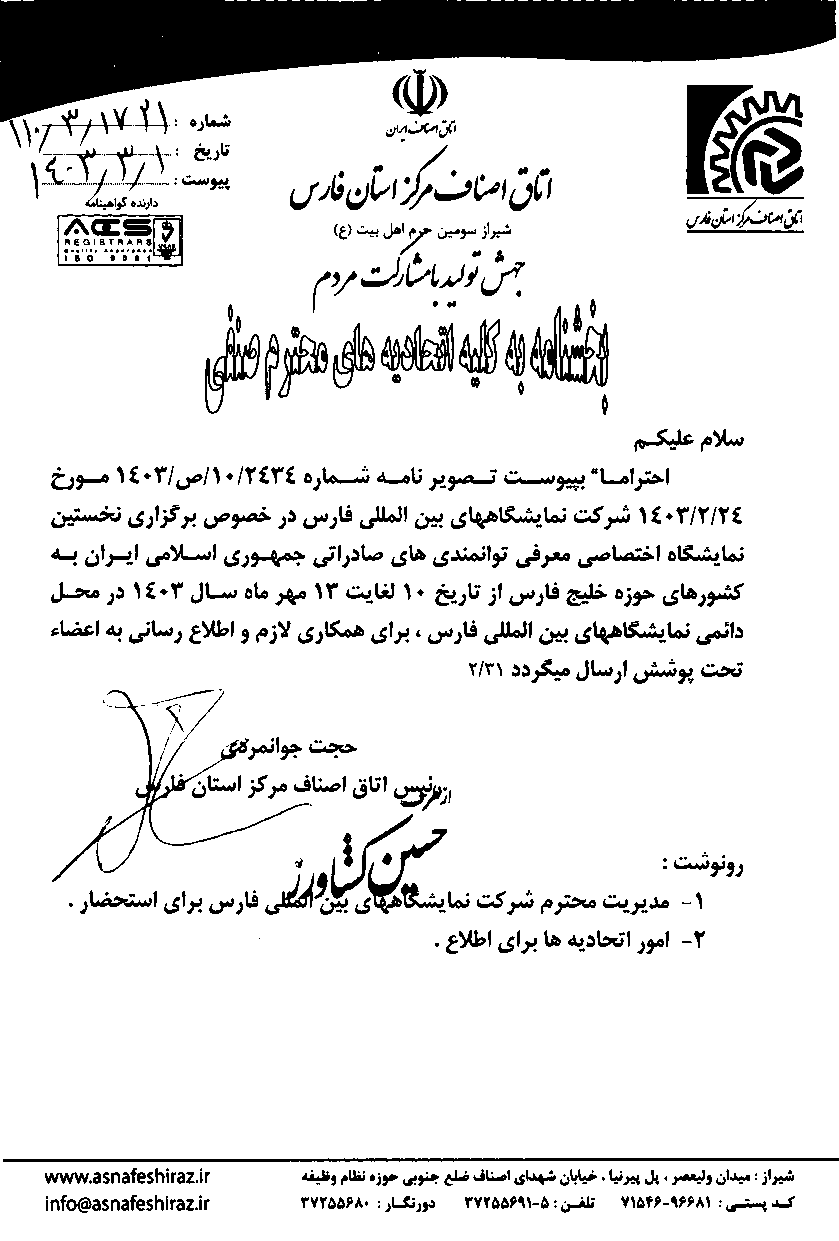 اتاق اصناف ایران
شماره : ۱۱۰/۳/۱۷۲۱
تاریخ : ۱۴۰۳/۳/۱
پیوست :
دارنده گواهینامه
ACS
REGISTRARS
Quality Assurance
ISO 9001
اتاق اصناف مرکز استان فارس
اتاق اصناف مرکز استان فارس
شیراز سومین حرم اهل بیت (ع)
جهش تولید با مشارکت مردم
بخشنامه به کلیه اتحادیه های محترم صنفی
سلام علیکم
احتراما" بپیوست تصویر نامه شماره ۱۰/۲۴۳۴/ص/۱۴۰۳ مورخ
۱۴۰۳/۲/۲۴ شرکت نمایشگاههای بین المللی فارس در خصوص برگزاری نخستین
نمایشگاه اختصاصی معرفی توانمندی های صادراتی جمهوری اسلامی ایران به
کشورهای حوزه خلیج فارس از تاریخ ۱۰ لغایت ۱۳ مهر ماه سال ۱۴۰۳ در محل
دائمی نمایشگاههای بین المللی فارس ، برای همکاری لازم و اطلاع رسانی به اعضاء
تحت پوشش ارسال میگردد ۲/۳۱
حجت جوانمردی
رئیس اتاق اصناف مرکز استان فارس
از طرف
حسین کشاورز
رونوشت :
۱- مدیریت محترم شرکت نمایشگاههای بین المللی فارس برای استحضار .
۲- امور اتحادیه ها برای اطلاع .
شیراز : میدان ولیعصر ، پل پیرنیا ، خیابان شهدای اصناف ضلع جنوبی حوزه نظام وظیفه
کد پستی : ۹۶۶۸۱-۷۱۵۴۶ تلفن : ۵-۳۷۲۵۵۶۹۱ دورنگار : ۳۷۲۵۵۶۸۰
www.asnafeshiraz.ir
info@asnafeshiraz.ir